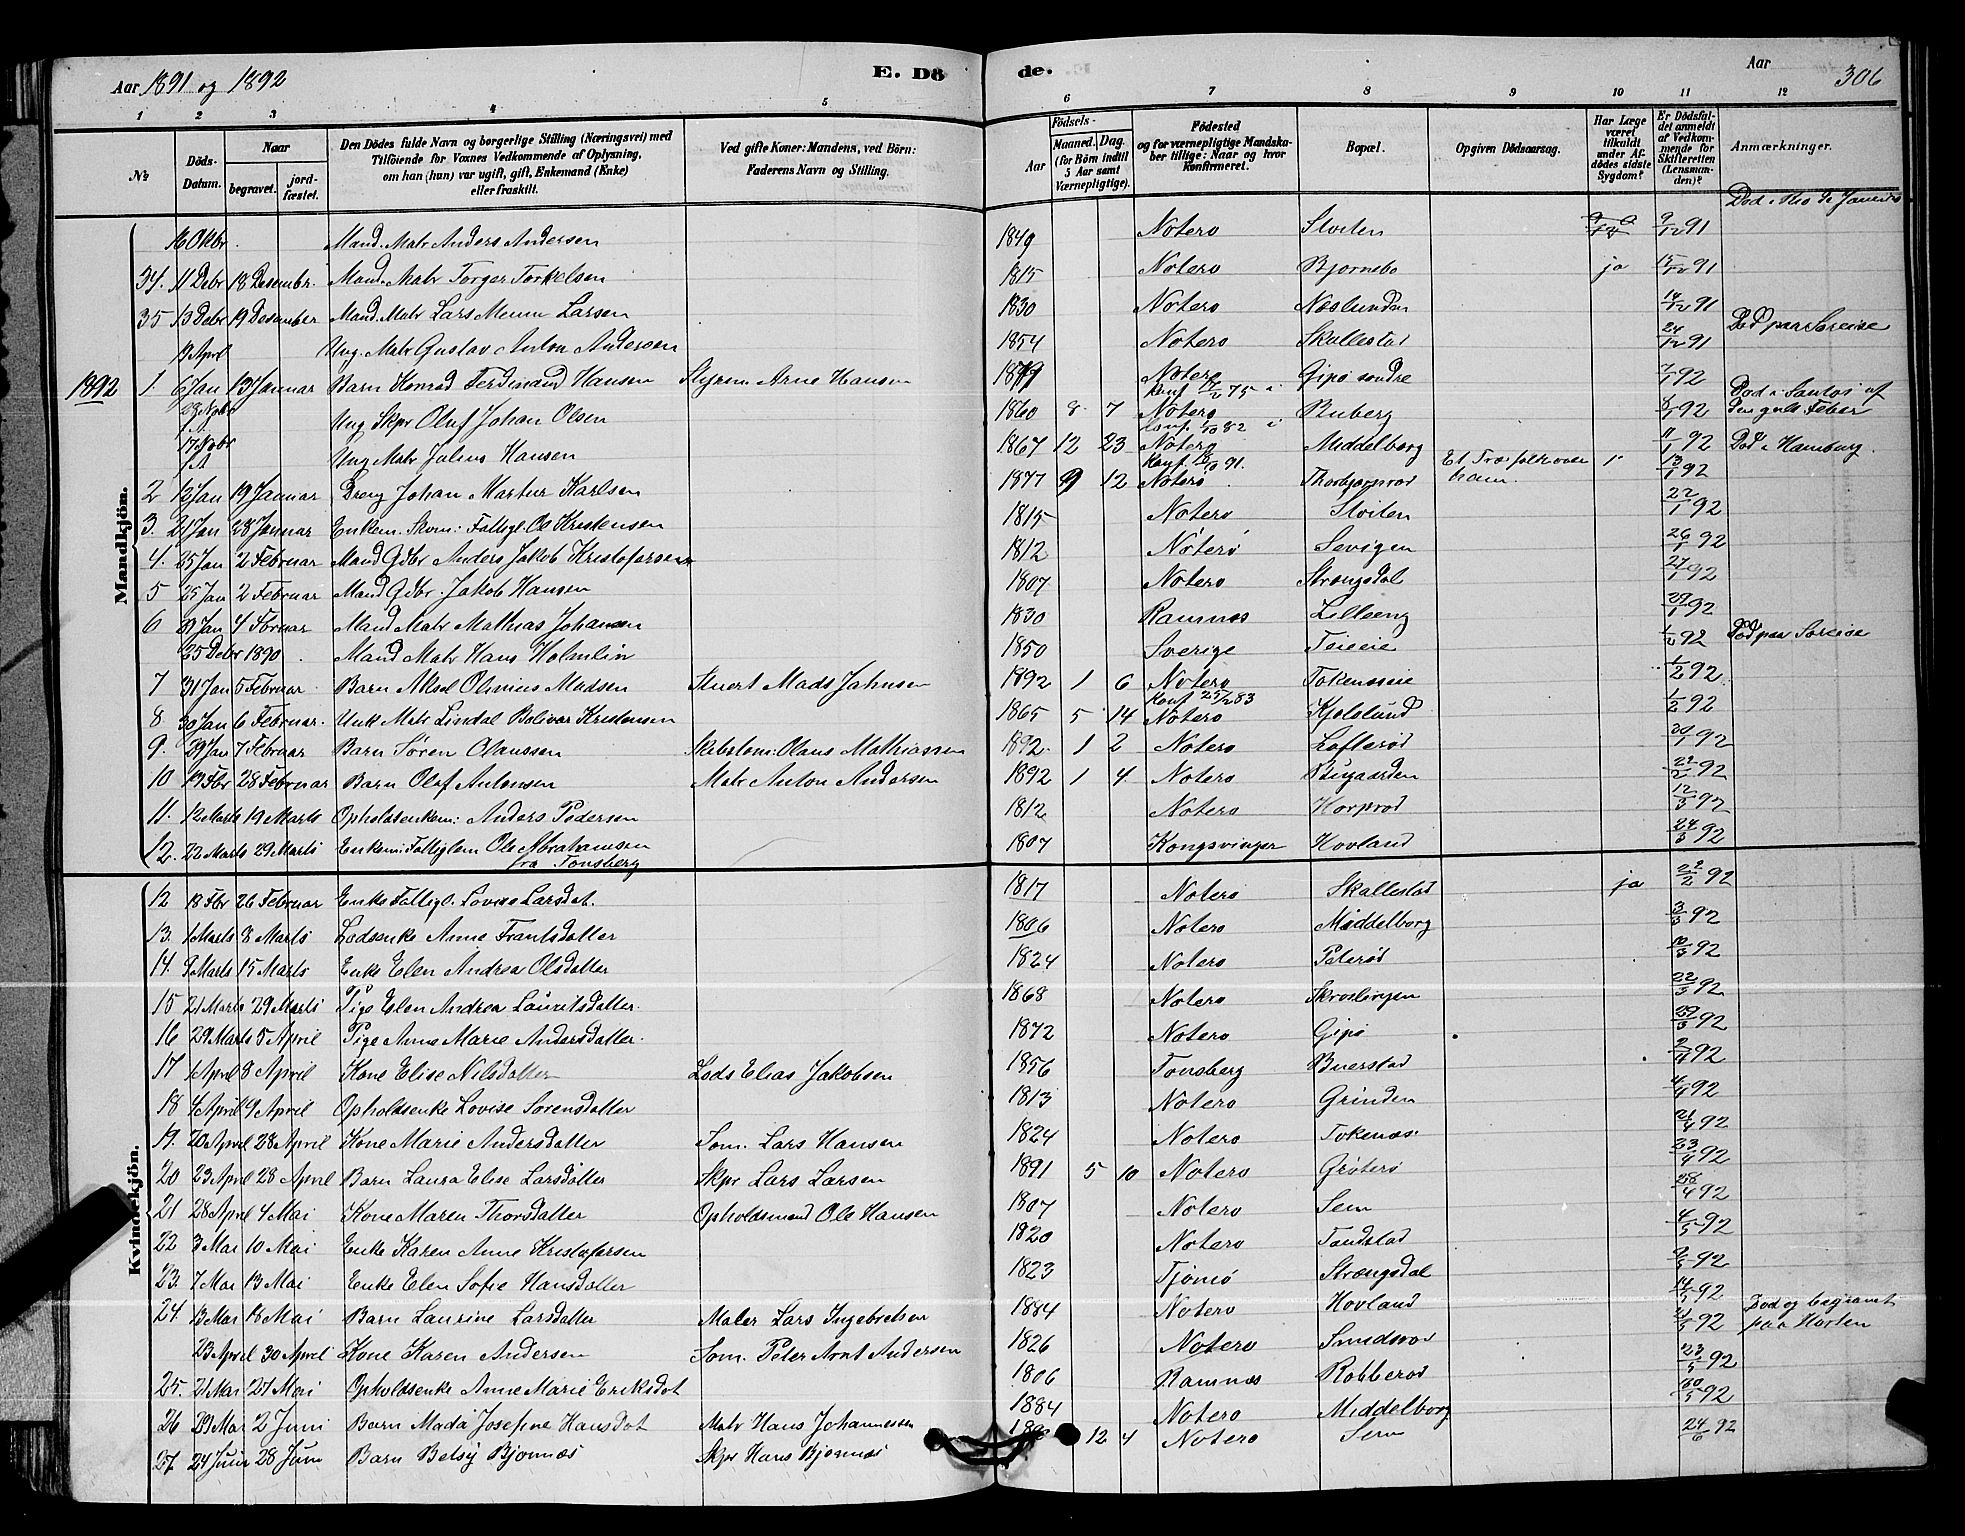 Aar 1891 og 1892
E. Dö de.
Aar
306
1 2 3 4 5 6 7 8 9 10 11 12
№
Döds-Datum.
Naar
begravet.
jord-fæstet.
Den Dödes fulde Navn og borgerlige Stilling (Næringsvei) med
Tilföiende for Voxnes Vedkommende af Oplysning,
om han (hun) var ugift, gift, Enkemand (Enke)
eller fraskilt.
Ved gifte Koner: Mandens, ved Börn:
Faderens Navn og Stilling.
Födsels-
Aar
Maaned. Dag.
(for Börn indtil
5 Aar samt
Værnepligtige).
Födested
og for værnepligtige Mandska-
ber tillige: Naar og hvor
Konfirmeret.
Bopæl.
Opgiven Dödsaarsag.
Har Læge
været
tilkaldt
under Af-
dödes sidste
Sygdom?
Er Dödsfal-
det anmeldt
af Vedkom-
mende for
Skifteretten
(Lensman-
den)?
Anmærkninger.
Mandkjön.
16 Oktbr Mand. Matr Anders Andersen 1849 Notero Stoiten 9/12 91 Död i Rio de Janeiro
34. 11 Debr 18 Desembr. Mand. Matr Torger Torkelsen 1815 Notero Bjornebo ja 15/12 91
35 13 Debr 19 Desember Mand. Matr Lars Larsen 1830 Notero Neslunden 14/12 91
9 April Ung. Matr Gustav Anton Andersen 1854 Notero Skallestad 24/12 91 Död paa Søreise
1892 1 6 Jan 13 Januar Barn Konrad Ferdinand Hansen Styrm Arne Hansen Notero Gipø søndre 7/1 92
Ung Skpr Oluf Johan Olsen 1860 8 7 Notero Ruberg 8/1 92 Död i Santos af den gule Feber
17 Novbr Ung Matr Julius Hansen 1867 12 23 Notero Middelborg 11/1 92 Död i Hamburg.
2 12 Jan 19 Januar Dreng Johan Martin Karlsen 1877 9 12 Notero Thorbjørnrød Et Træ falt over ham. 13/1 92
3. 21 Jan 28 Januar Enkem. Skom: Fattigl. Ole Kristensen 1815 Notero Stoiten 22/1 92
4. 25 Jan 2 Februar Mand Gdbr Anders Jakob Kristofersen 1812 Nøterø Sevigen 26/1 92
5 25 Jan 2 Februar Mand Gdbr. Jakob Hansen 1807 Notero Strængsdal 27/1 92
6 Jan 4 Foruar Mand Matr Mathias Johansen 1830 Ramnæs Lilleeng 29/1 92
25 Debr 1890 Mand Matr Hans Holmlin 1850 Sverige Teieie 1/2 92 Død paa Søreise
7 31 Jan 5 Februar Barn Aksel Olinius Madsen Stuert Mads Johnsen 1892 1 6 Notero Tokenæseie 1/2 92
8 30 Jan 6 Februar. Unk Matr Lindal Bolivar Kristensen 1865 5 14 Konf 25/2 83 Notero Kjolslund 1/2 92
9. 29 Jan 7 Februar Barn Søren Olaussen Skibstom: Olaus Mathiassen 1892 1 2 Notero Lofterød 30/1 92
10 19 Fbr 28 Februar Barn Olaf Antonsen Matr Anton Andersen 1892 1 4 Notero Bugaarden 22/2 92
11. 12 Marts 19 Marts Opholdsenkem: Anders Pedersen 1812 Notero Horprod 12/3 92
12. 22 Marts 29 Marts Enkem: Fattiglem Ole Abrahamsen fra Tonsberg 1807 Kongsvinger Hovland 24/3 92
Kvindekjön.
12 18 Fbr 26 Februar Enke Fattigl. Lovise Larsdat. 1817 Notero Skallestad ja 22/2 92
13. 1 Marts 8 Marts Lodsenke Anne Frantsdatter 1806 Notero Middelborg 3/3 92
14. 9 Marts 15 Marts Enke Elen Andrea Olsdatter 1824 Notero Peterød 10/3 92
15 21 Marts 29 Marts Pige Elen Andrea Lauritsdatter. 1868 Notero Skroslingen 22/3 92
16 29 Marts 5 April Pige Anne Marie Andersdatter. 1872 Notero Gipø 29/3 92
17 1 April 8 April Kone Elise Nilsdatter Lods Elias Jakobsen 1856 Tonsberg Buerstad 2/4 92
18 4 April 9 April Opholdsenke Lovise Sorensdatter 1813 Notero Grinden 4/4 92
19. 20 April 28 April Kone Marie Andersdatter Tom. Lars Hansen 1824 Notero Tokenæs 21/4 92
20 23 April 28 April Barn Laura Elise Larsdatter Skpr Lars Larsen 1891 5 10 Notero Grøterø 23/4 92
21 28 April 4 Mai Kone Maren Thorsdatter Opholdsmand Ole Hansen 1807 Notero Sem 28/4 92
22 3 Mai 10 Mai Enke Karen Anne Kristofersen 1820 Notero Tandstad 4/5 92
23. 7 Mai 13 Mai Enke Elen Sofie Hansdatter 1823 Tjømø Strængsdal 9/5 92
24. 13 Mai 18 Mai Barn Laurine Larsdatter Maler Lars Ingebretsen 1884 Notero Hovland 14/5 92
23 April 30 April Kone Karen Andersen Tom. Peter Arnt Andersen 1826 Notero Smidsrod 21/5 92 Død og begravet paa Horten
25. 21 Mai 27 Mai Opholdsenke Anne Marie Eriksdat 1806 Ramnæs Robberød 23/5 92
26 29 Mai 2 Juni Barn Mada Josefine Hansdat Matr Hans Johannessen 1884 Notero Middelborg 30/5 92
27. 24 Juni 28 Juni Barn Betsy Bjonnæs Skpr Hans Bjonnæs 12 4 Notero Sem 24/6 92